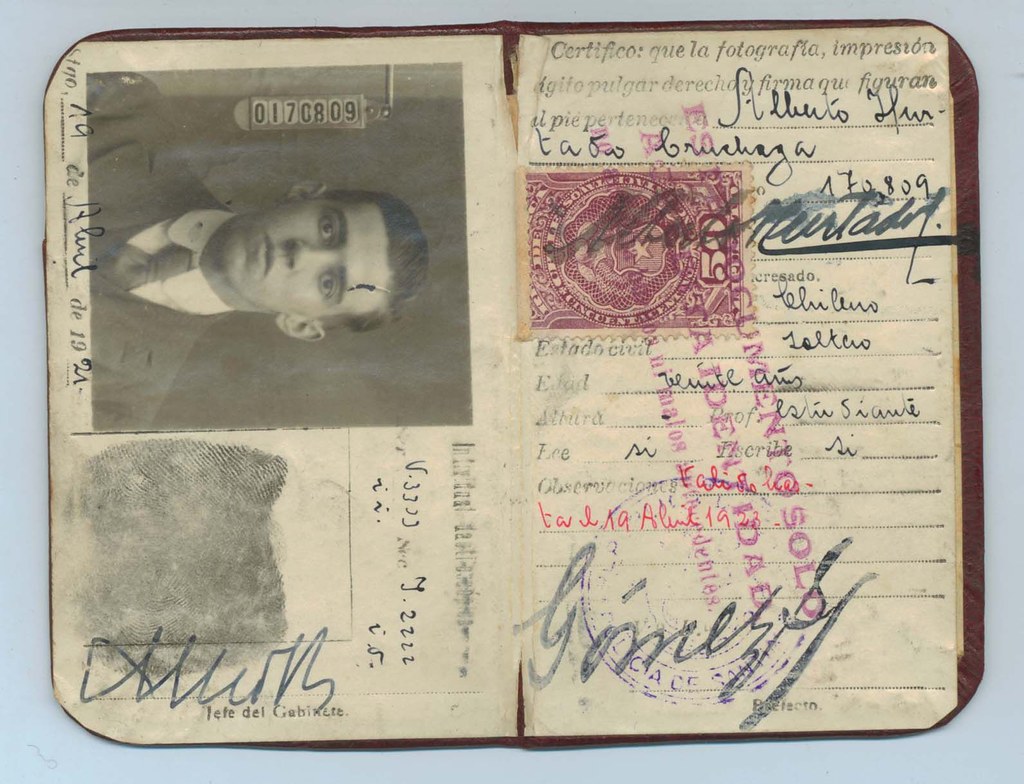 Stgo, 19 de Abril de 1921
0170809
V.3333 Sec. 9.2222
Jefe del Gabinete.
Certifico: que la fotografía, impresión
dígito pulgar derecho y firma que figuran
al pie pertenecen a Alberto Hur-
tado Cruchaga
170809
Alberto Hurtado C.
50
Interesado.
Chileno
Estado civil soltero
Edad veinte años
Altura Prof. estudiante
Lee si Escribe si
Observaciones Valido has-
ta el 19 Abril 1923.
ES
DOCUMENTO SOLO
DE IDENTIDAD
Gómez
Prefecto.